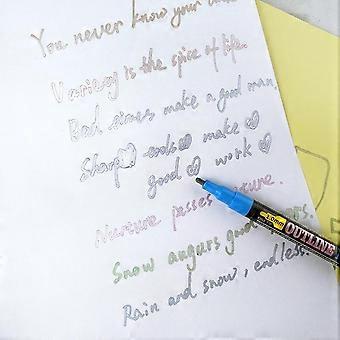 You never know your
Variety is the spice of life.
Bad times make a good man.
Sharp ends make
good work
Nurture passes nature.
Snow augurs good
Rain and snow, endless.
OUTLINE